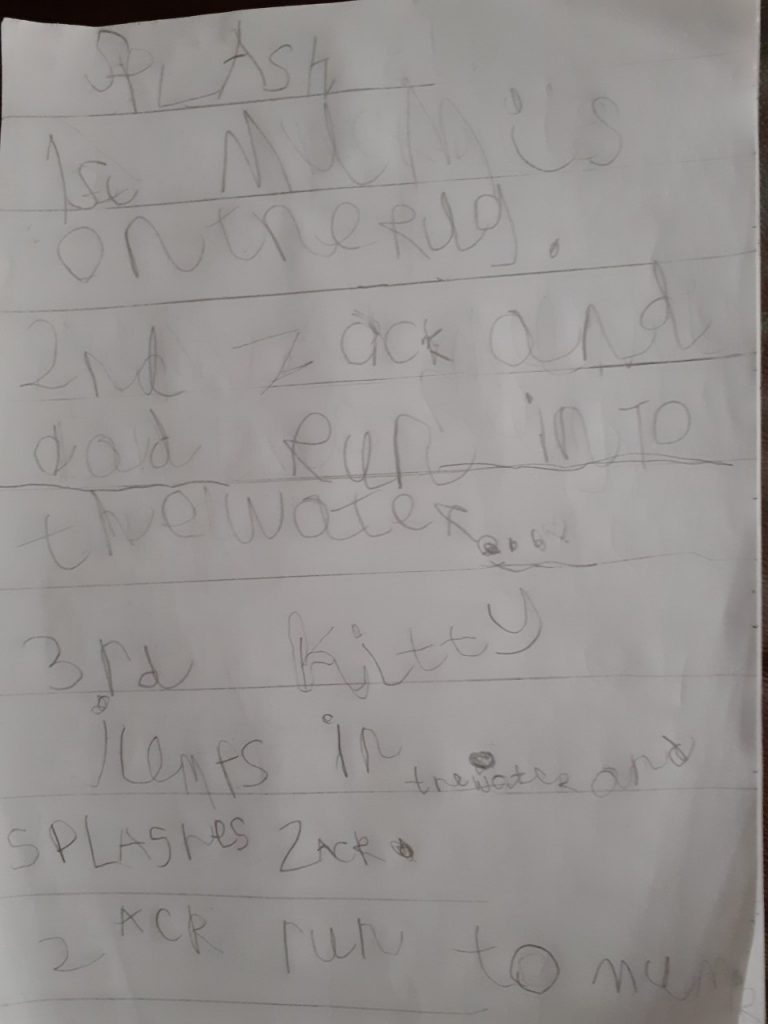 SPLAsh
1st MuM is
on the Rug.
2nd Zack and
dad Run in TO
the water....
3rd Kitty
jumps in the water and
SPLAShes ZACK.
ZACK run to mum